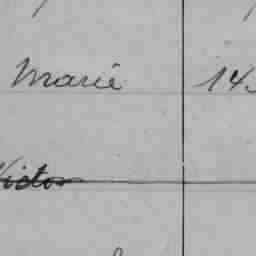 Marie 14
Victor